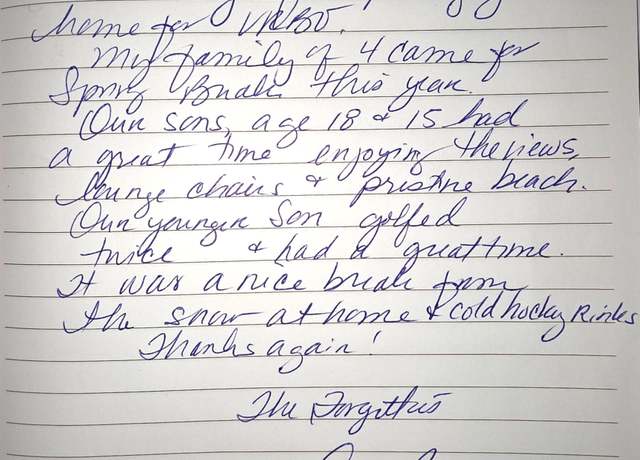 home for VRBO.
My family of 4 came for
Spring Break this year.
Our sons, age 18 & 15 had
a great time enjoying the views,
lounge chairs & pristine beach.
Our younger son golfed
twice & had a great time.
It was a nice break from
the snow at home & cold hockey Rinks
Thanks again!
The